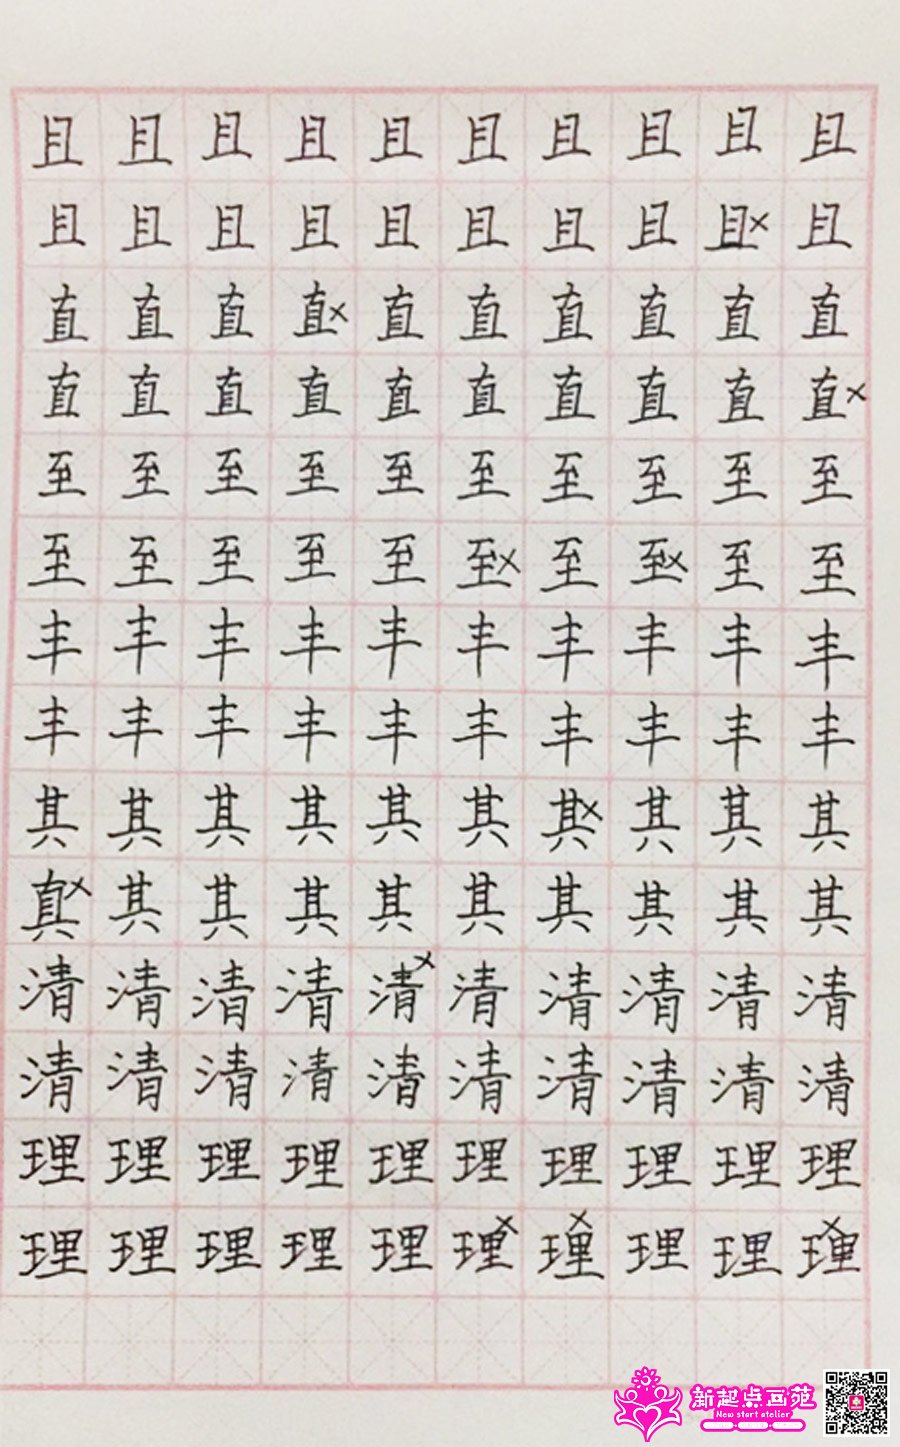 且且且且且且且且且且
且且且且且且且且且且
直直直直直直直直直直
直直直直直直直直直直
至至至至至至至至至至
至至至至至至至至至至
丰丰丰丰丰丰丰丰丰丰
丰丰丰丰丰丰丰丰丰丰
其其其其其其其其其其
真其其其其其其其其其
清清清清清清清清清清
清清清清清清清清清清
理理理理理理理理理理
理理理理理理理理理理
新起点画苑
New start atelier